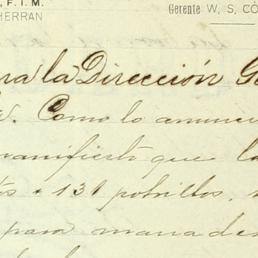 , F. I. M.
HERRAN
Gerente W, S, CO
ra la Dirección Ge
. Como lo anunci
manifiesto que la
s + 131 potrillos,
para manades